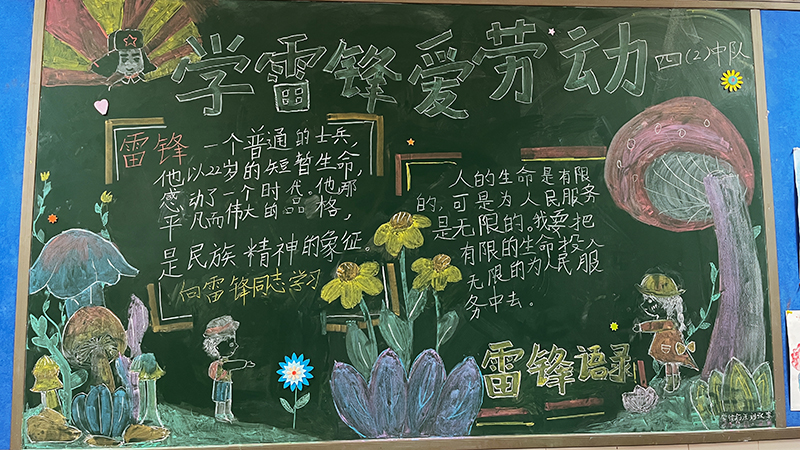 学雷锋爱劳动
四(2)中队
雷锋 一个普通的士兵,
他以22岁的短暂生命,
感动了一个时代。他那
平凡而伟大的品格,
是民族精神的象征。
向雷锋同志学习
人的生命是有限
的,可是为人民服务
是无限的。我要把
有限的生命投入
无限的为人民服
务中去。
雷锋语录